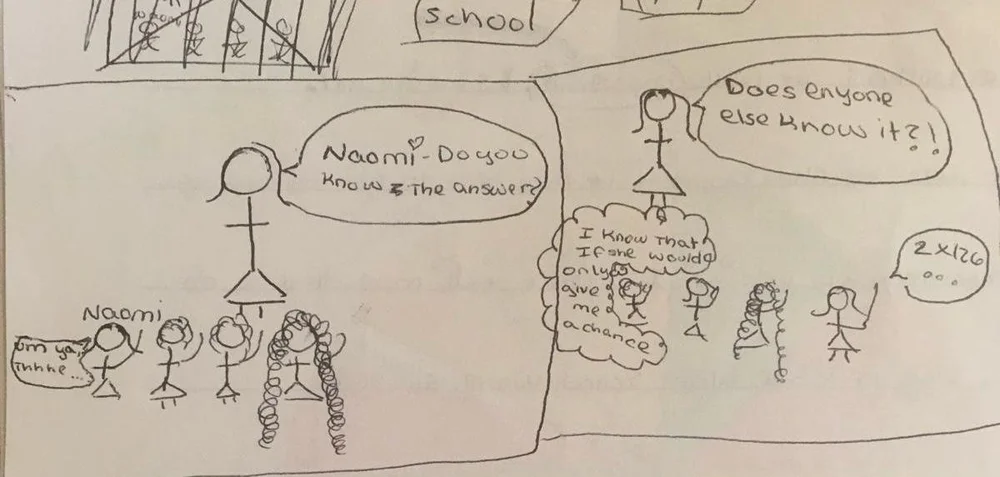 school
Naomi - Do you
know the answer?
Naomi
um ya,
Does enyone
else know it?!
I know that
If she would
only
give
me
a chance
2x126
...